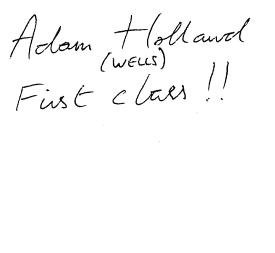 Adam Holland
(WELLS)
First class !!